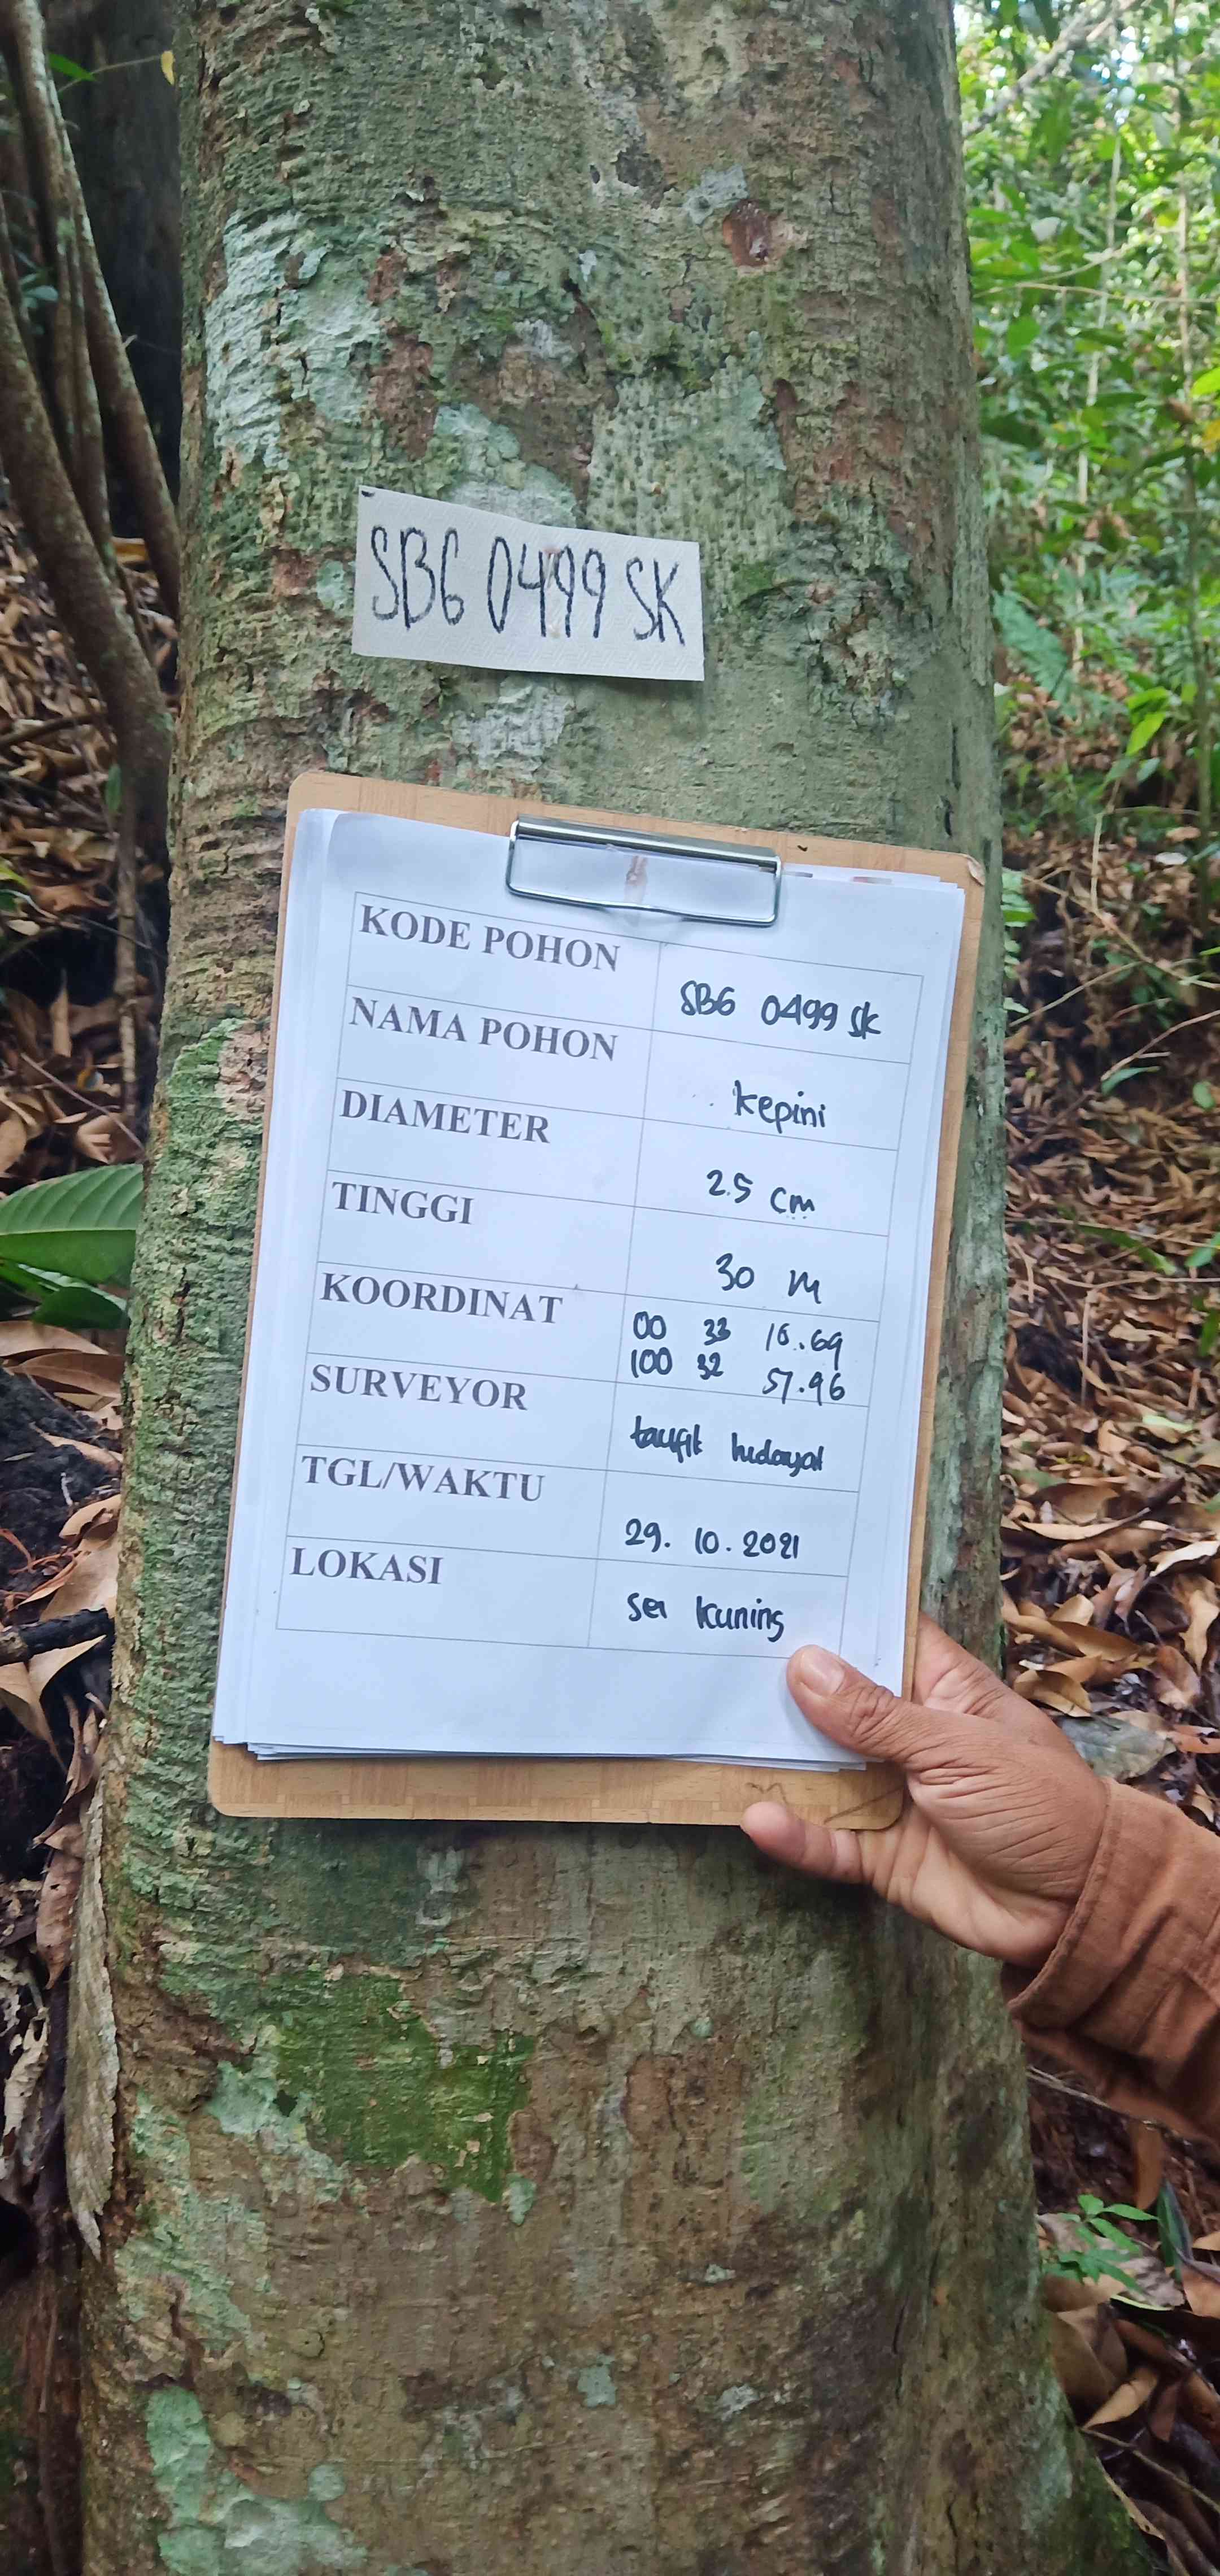 SBG 0499 SK
KODE POHON SBG 0499 SK
NAMA POHON kepini
DIAMETER 25 cm
TINGGI 30 m
KOORDINAT 00 33 16.69
100 32 57.96
SURVEYOR taufik hidayat
TGL/WAKTU 29. 10. 2021
LOKASI sei kuning